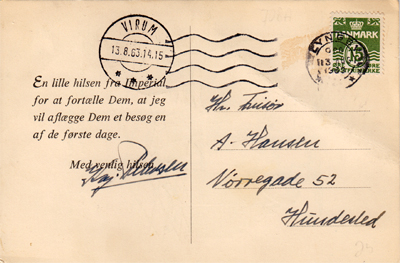 VIRUM
13.8.63.14.15
En lille hilsen fra Imperial
for at fortælle Dem, at jeg
vil aflægge Dem et besøg en
af de første dage.
Med venlig hilsen
Petersen
DANMARK
Hr. Frisør
A. Hansen
Nørregade 52
Hundested